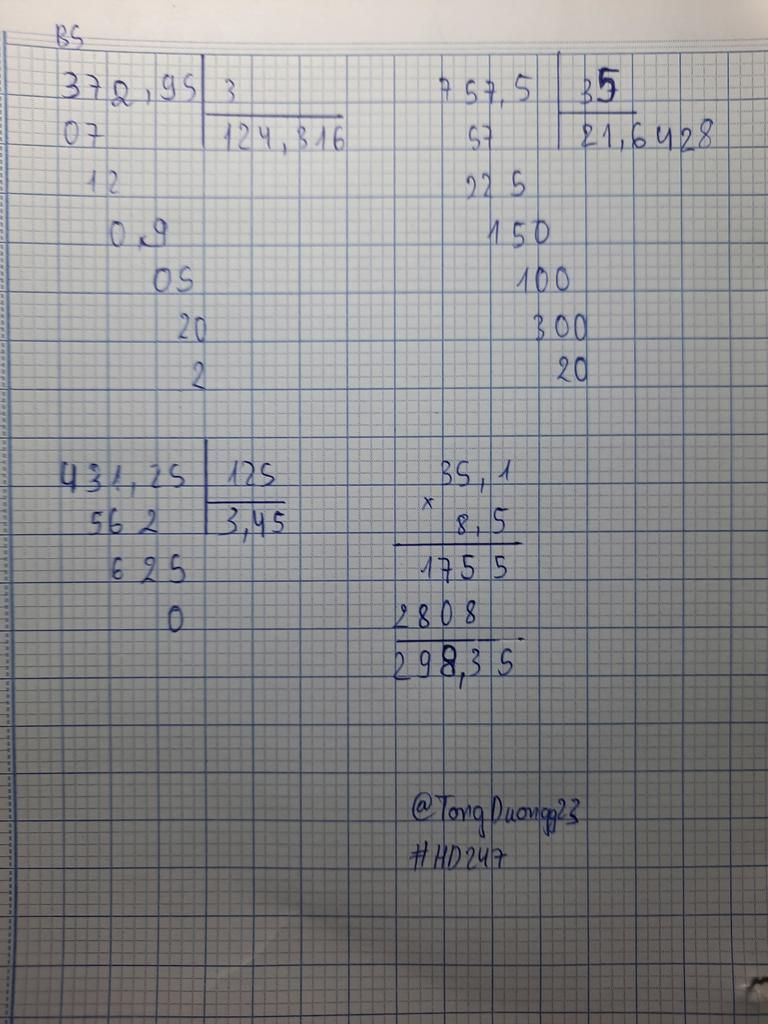 B5
372,95 3
07 124,316
12
0,9
05
20
2
757,5 35
57 21,6428
225
150
100
300
20
431,25 125
562 3,45
625
0
35,1
×
8,5
1755
2808
298,35
@TongDuongg23
#HD247